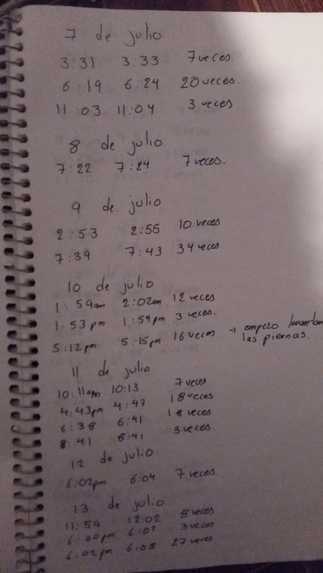 7 de julio
3:31 3:33 7 veces
6:19 6:24 20 veces.
11:03 11:04 3 veces
8 de julio
7:22 7:24 7 veces.
9 de julio
2:53 2:55 10 veces
7:39 7:43 34 veces
10 de julio
1:59am 2:02am 12 veces
1:53 pm 1:54 pm 3 veces.
5:12 pm 5:15 pm 16 veces → empezo
las piernas.
11 de julio
10:11am 10:13 7 veces
4:43pm 4:47 18 veces
6:38 6:41 18 veces
8:41 8:41 3 veces.
12 de julio
6:02pm 6:04 7 veces.
13 de julio
11:54 12:02 veces
6:00pm 6:02 3 veces
6:02 pm 6:05 27 veces